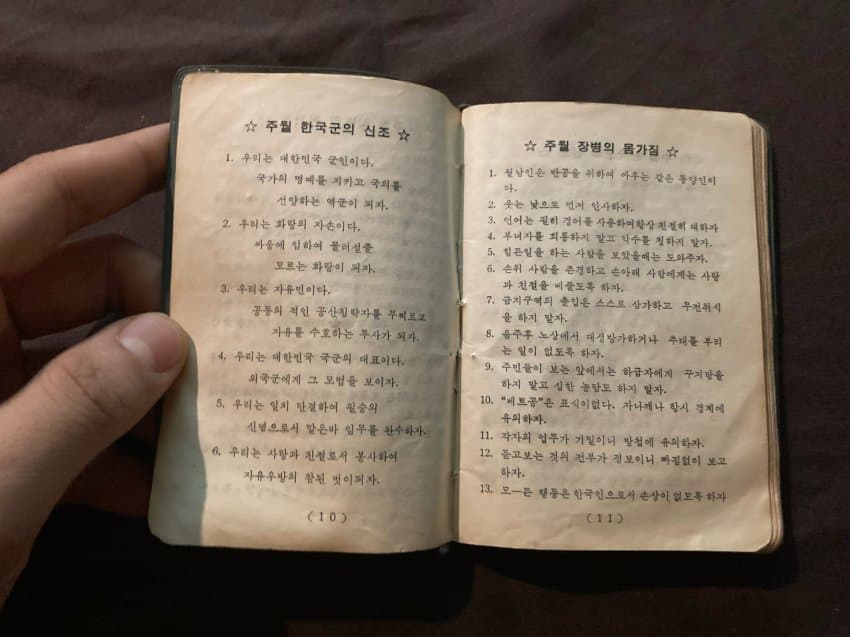 ☆ 주월 한국군의 신조 ☆
1. 우리는 대한민국 군인이다.
국가의 명예를 지키고 국의를
선양하는 역군이 되자.
2. 우리는 화랑의 자손이다.
싸움에 임하여 물러설줄
모르는 화랑이 되자.
3. 우리는 자유민이다.
공동의 적인 공산침략자를 무찌르고
자유를 수호하는 투사가 되자.
4. 우리는 대한민국 국군의 대표이다.
외국군에게 그 모범을 보이자.
5. 우리는 일치 단결하여 필승의
신념으로서 맡은바 임무를 완수하자.
6. 우리는 사랑과 친절로서 봉사하여
자유우방의 참된 벗이되자.
(10)
☆ 주월 장병의 몸가짐 ☆
1. 월남인은 반공을 위하여 싸우는 같은 동양인이
다.
2. 웃는 낯으로 먼저 인사하자.
3. 언어는 필히 경어를 사용하여항상 친절히 대하자
4. 부녀자를 희롱하지 말고 악수를 청하지 말자.
5. 힘든일을 하는 사람을 보았을때는 도와주자.
6. 손위 사람을 존경하고 손아래 사람에게는 사랑
과 친절을 베풀도록 하자.
7. 금지구역의 출입은 스스로 삼가하고 무전취식
을 하지 말자.
8. 음주후 노상에서 대성방가하거나 추태를 부리
는 일이 없도록 하자.
9. 주민들이 보는 앞에서는 하급자에게 꾸지람을
하지 말고 심한 농담도 하지 말자.
10. "베트콩"은 표식이없다. 자나깨나 항시 경계에
유의하자.
11. 각자의 업무가 기밀이니 방첩에 유의하자.
12. 듣고보는 것의 전부가 정보이니 빠짐없이 보고
하자.
13. 모―든 행동은 한국인으로서 손상이 없도록 하자
(11)